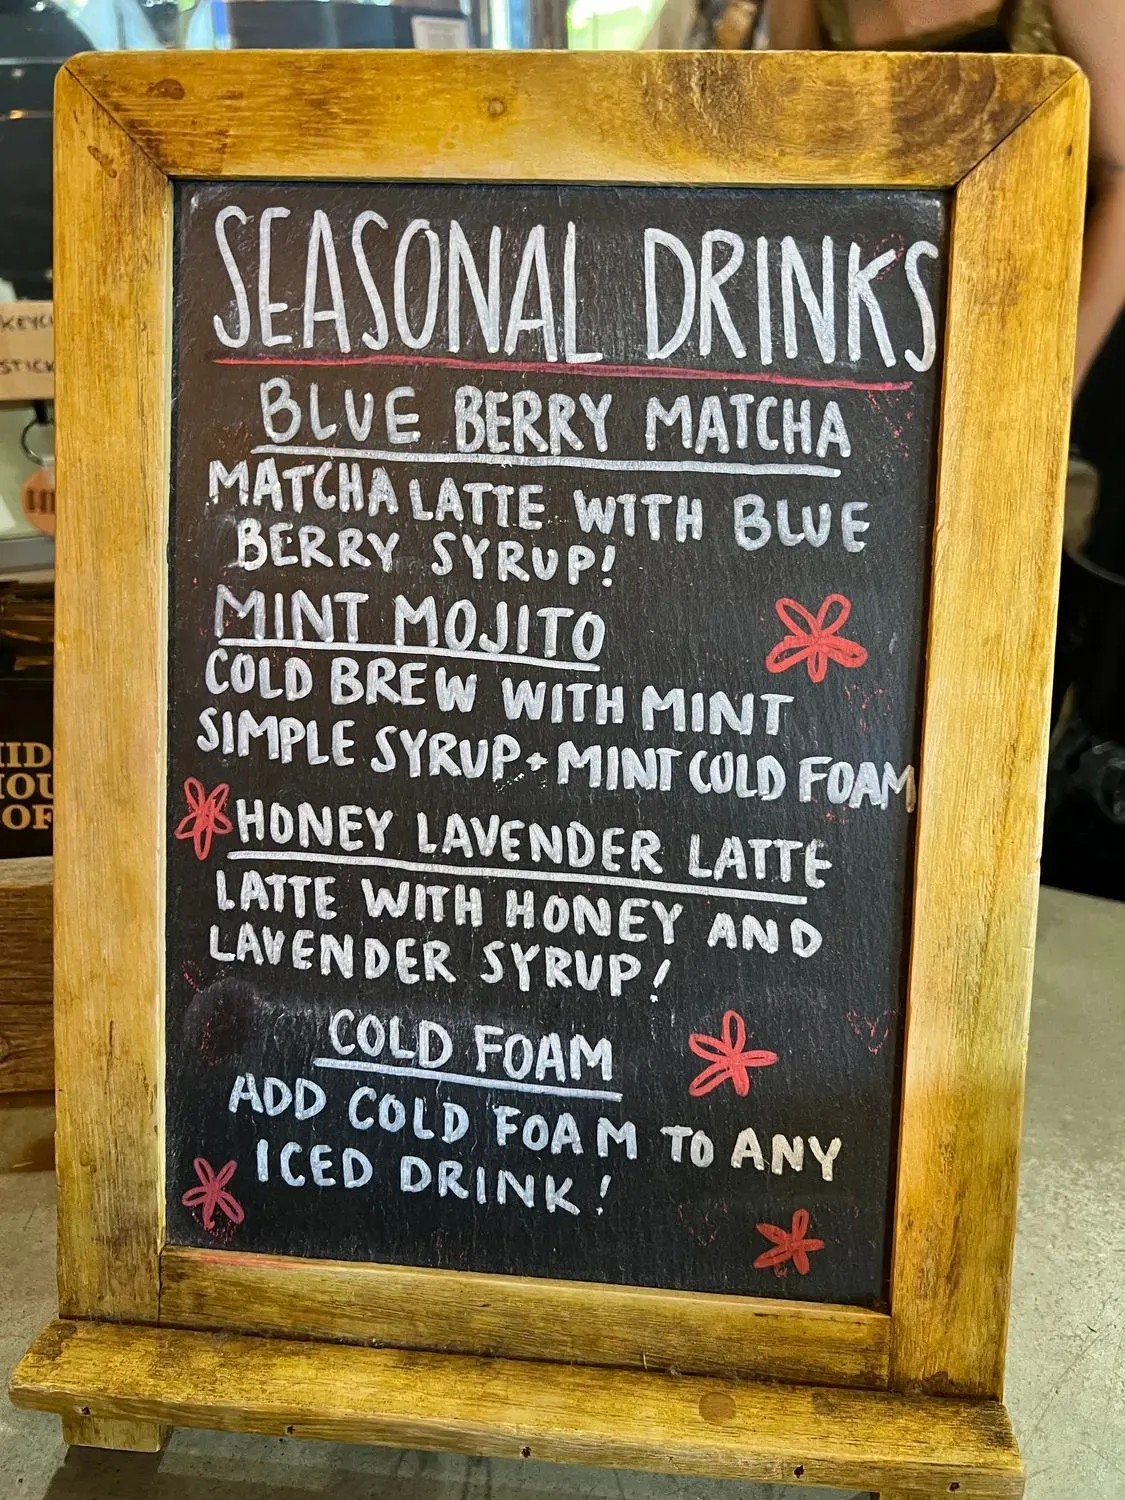 SEASONAL DRINKS
BLUE BERRY MATCHA
MATCHA LATTE WITH BLUE
BERRY SYRUP!
MINT MOJITO
COLD BREW WITH MINT
SIMPLE SYRUP + MINT COLD FOAM
HONEY LAVENDER LATTE
LATTE WITH HONEY AND
LAVENDER SYRUP!
COLD FOAM
ADD COLD FOAM TO ANY
ICED DRINK!